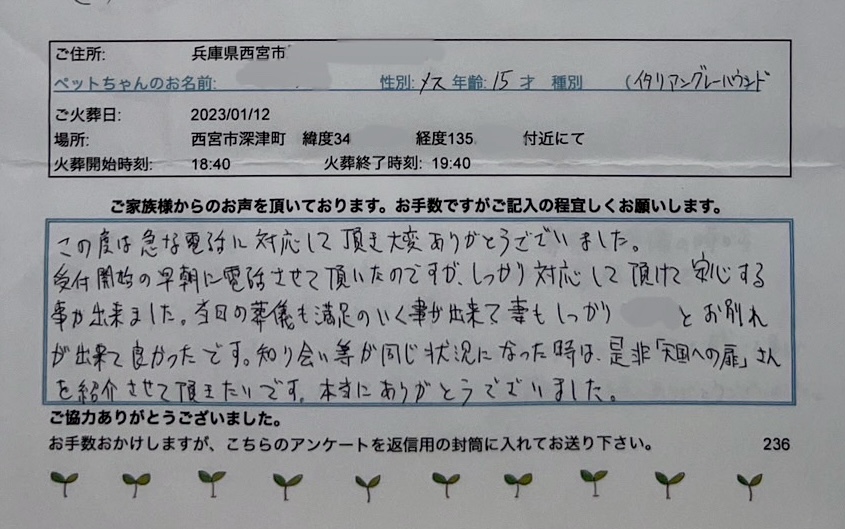 ご住所: 兵庫県西宮市
ペットちゃんのお名前: 性別: メス 年齢: 15 才 種別 (イタリアングレーハウンド
ご火葬日: 2023/01/12
場所: 西宮市深津町 緯度34 経度135 付近にて
火葬開始時刻: 18:40 火葬終了時刻: 19:40
ご家族様からのお声を頂いております。お手数ですがご記入の程宜しくお願いします。
この度は急な電話に対応して頂き大変ありがとうございました。
受付開始の早朝に電話させて頂いたのですが、しっかり対応して頂けて安心する
事が出来ました。当日の葬儀も満足のいく事が出来て妻もしっかり とお別れ
が出来て良かったです。知り合い等が同じ状況になった時は、是非「天国への扉」さん
を紹介させて頂きたいです。本当にありがとうございました。
ご協力ありがとうございました。
お手数おかけしますが、こちらのアンケートを返信用の封筒に入れてお送り下さい。 236